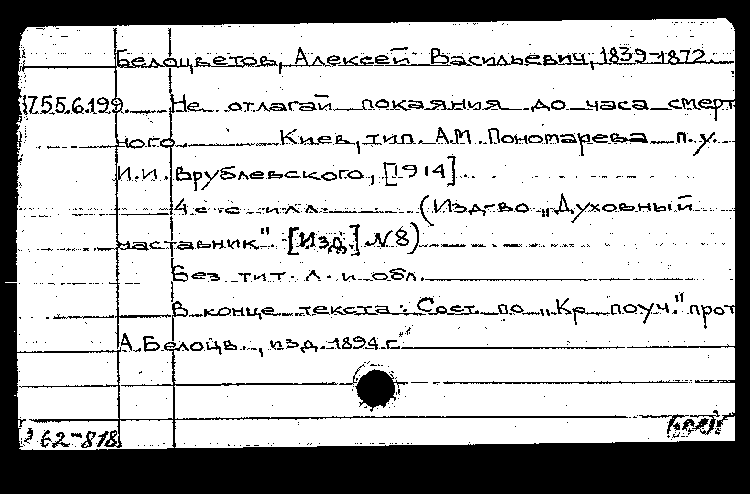 Белоцветов, Алексей Васильевич, 1839-1872.
755.6.199. Не отлагай покаяния до часа смерт
ного. Киев, тип. А.М. Пономарева п.у.
И.И. Врублевского, [1914].
4 с с илл. (Изд-во „Духовный
наставник" [Изд.] № 8)
Без тит. л. и обл.
В конце текста: Сост. по „Кр. поуч." прот
А. Белоцв., изд. 1894 г."
62-818